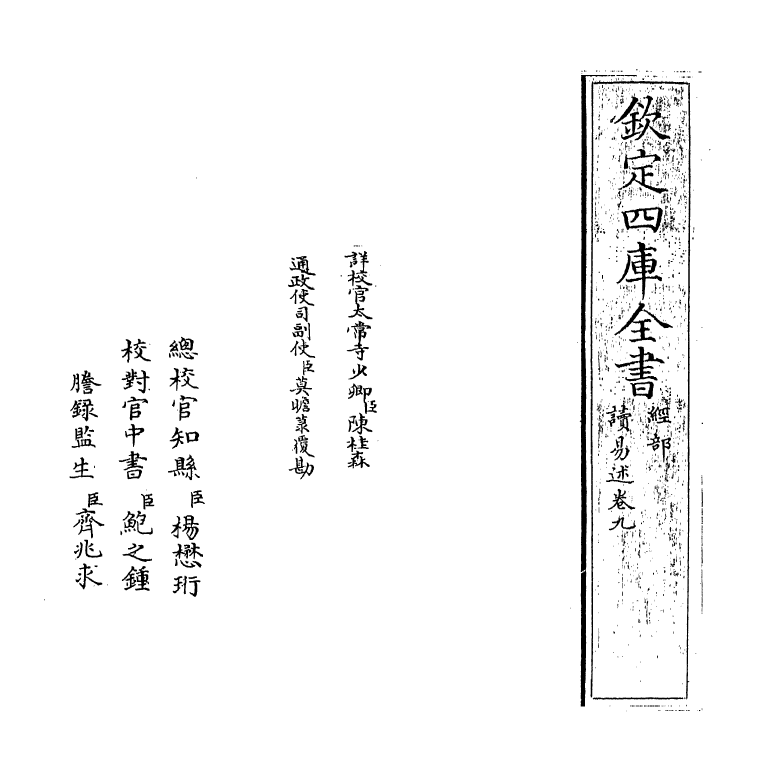 欽定四庫全書
經部
讀易述卷九
詳校官太常寺少卿臣陳桂森
通政使司副使臣莫瞻菉覆勘
總校官知縣臣楊懋珩
校對官中書臣鮑之鍾
謄録監生臣齊兆求